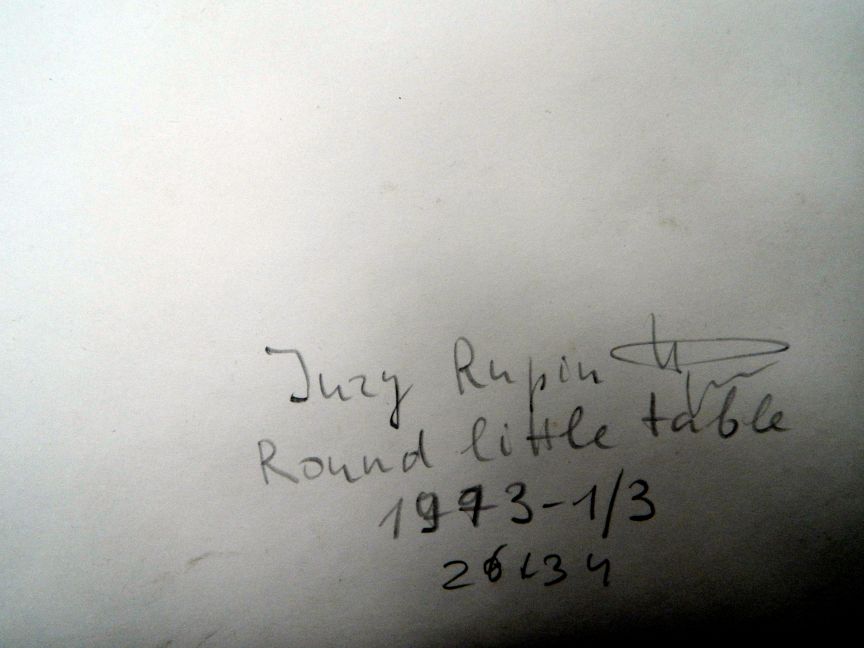 Jury Rupin
Round little table
1973-1/3
26x34